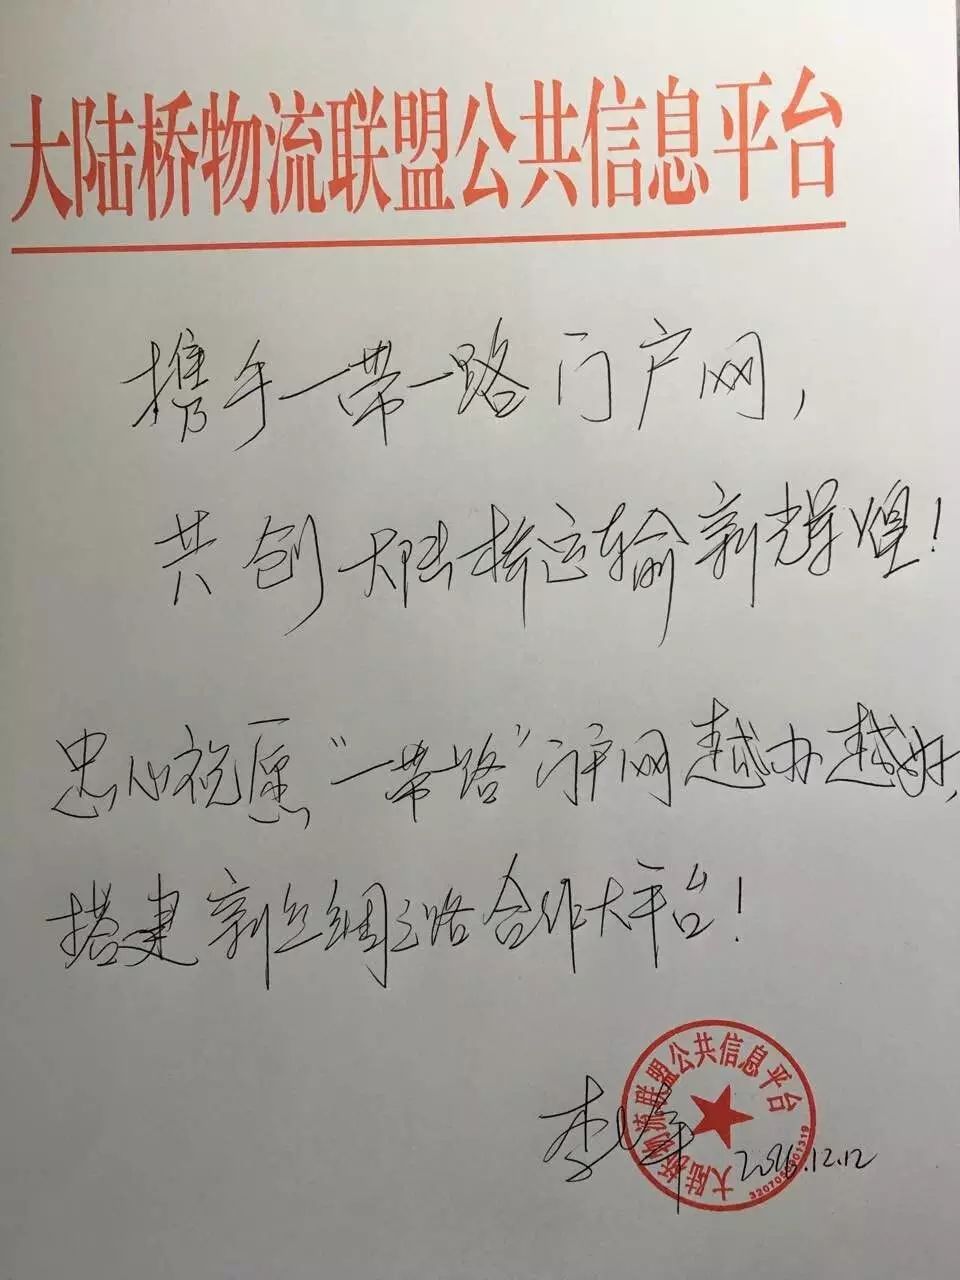 大陆桥物流联盟公共信息平台
携手一带一路门户网，
共创大陆桥运输新辉煌！
忠心祝愿“一带路”门户网越办越好，
搭建新丝绸之路合作大平台！
大陆桥物流联盟公共信息平台
李
2016.12.12